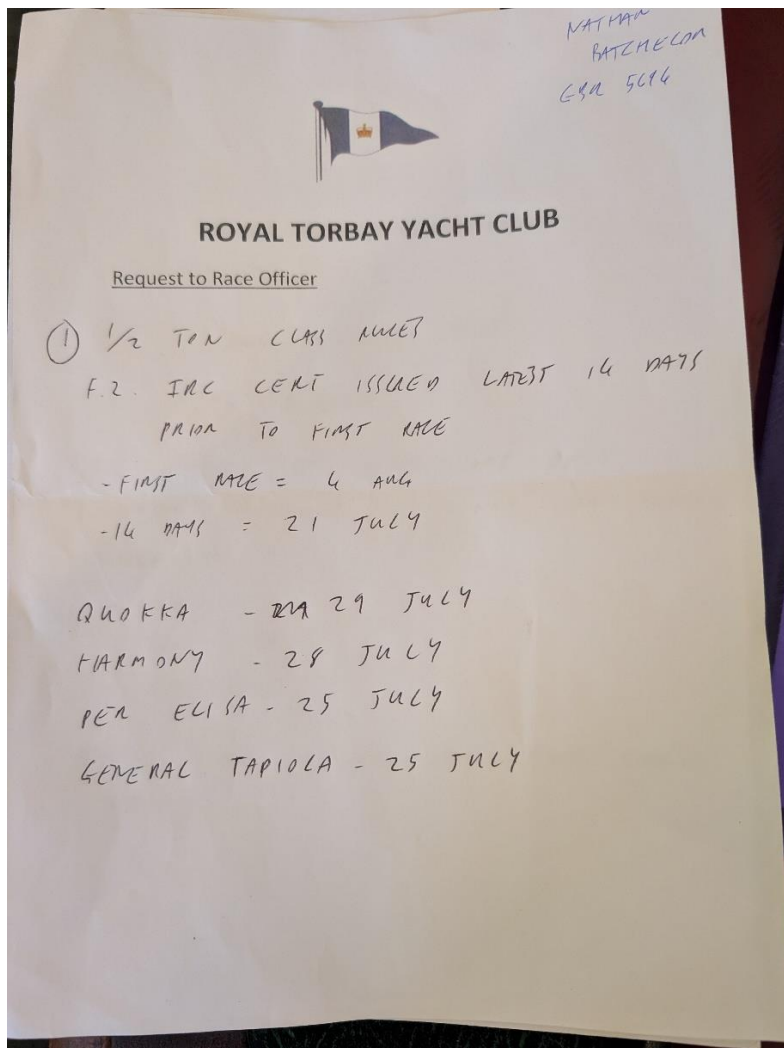 NATHAN
BATCHELOR
GBR 5694
ROYAL TORBAY YACHT CLUB
Request to Race Officer
① 1/2 TON CLASS RULES
F.2. IRC CERT ISSUED LATEST 14 DAYS
PRIOR TO FIRST RACE
- FIRST RACE = 4 AUG
- 14 DAYS = 21 JULY
QUOKKA - 29 JULY
HARMONY - 28 JULY
PER ELISA - 25 JULY
GENERAL TAPIOLA - 25 JULY